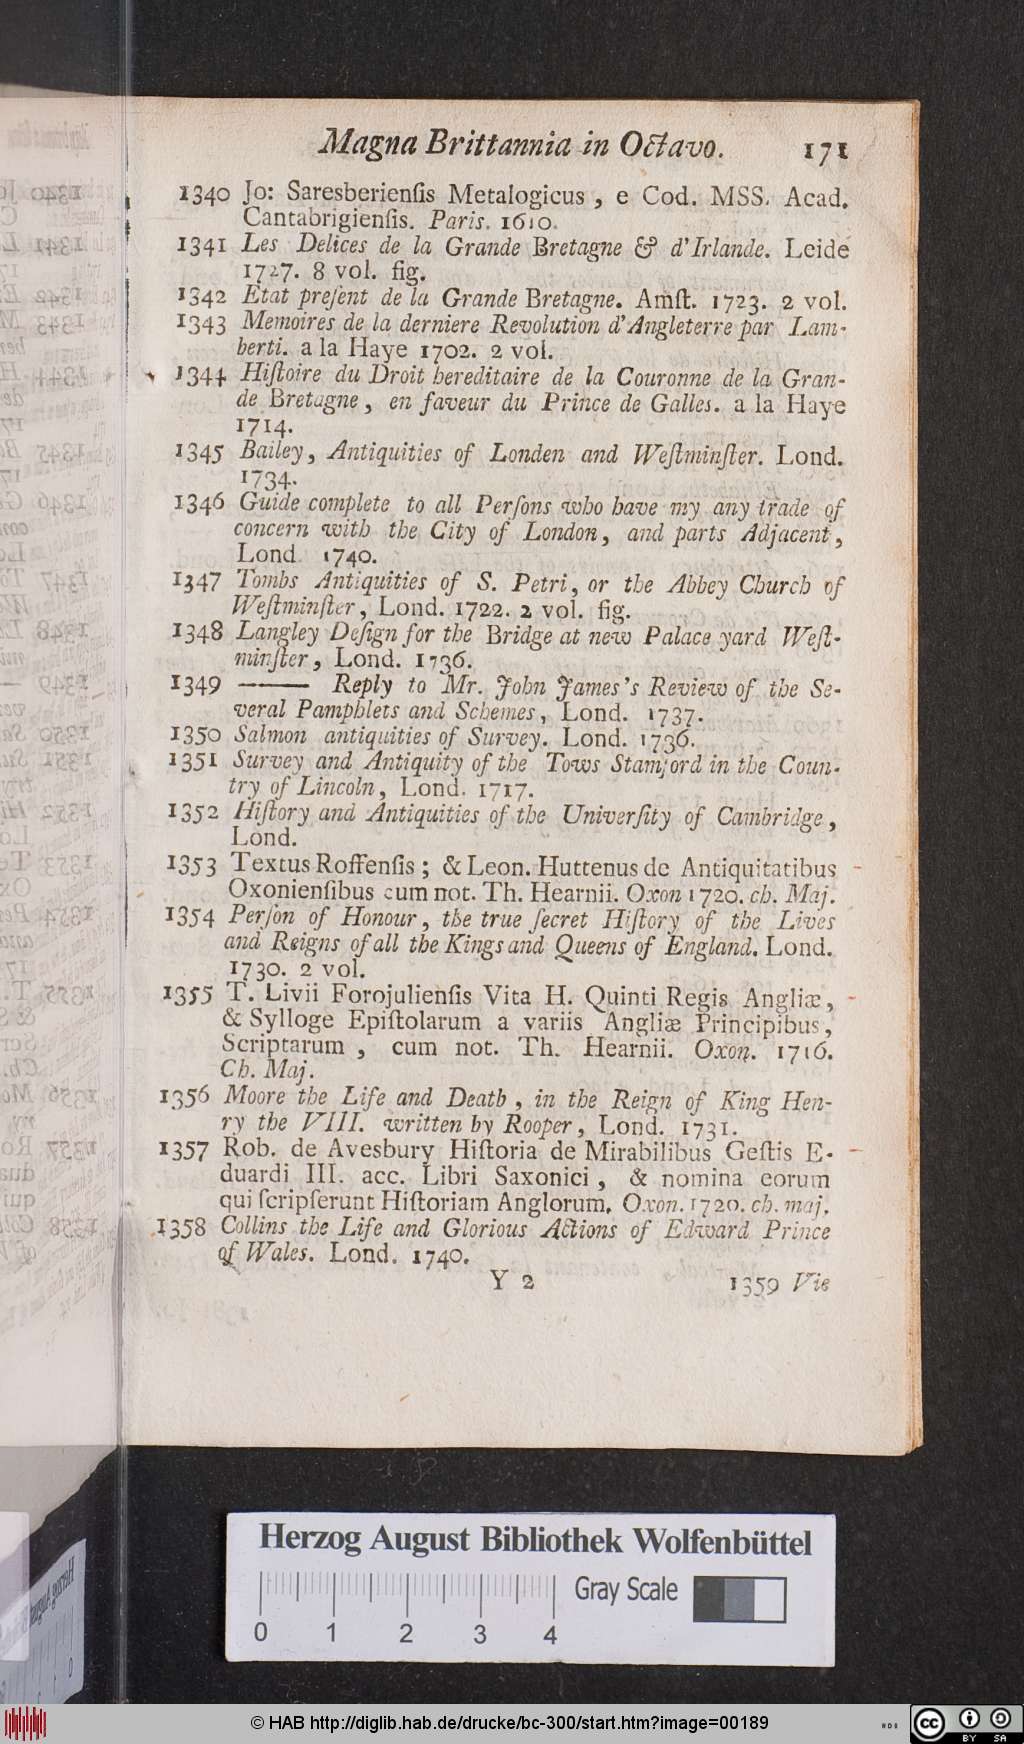 Magna Brittannia in Octavo. 171
1340 Jo: Saresberienſis Metalogicus, e Cod. MSS. Acad.
Cantabrigienſis. Paris. 1610.
1341 Les Delices de la Grande Bretagne & d'Irlande. Leide
1727. 8 vol. fig.
1342 Etat preſent de la Grande Bretagne. Amſt. 1723. 2 vol.
1343 Memoires de la derniere Revolution d'Angleterre par Lam-
berti. a la Haye 1702. 2 vol.
1344 Hiſtoire du Droit hereditaire de la Couronne de la Gran-
de Bretagne, en faveur du Prince de Galles. a la Haye
1714.
1345 Bailey, Antiquities of Londen and Weſtminſter. Lond.
1734.
1346 Guide complete to all Perſons who have my any trade of
concern with the City of London, and parts Adjacent,
Lond. 1740.
1347 Tombs Antiquities of S. Petri, or the Abbey Church of
Weſtminſter, Lond. 1722. 2 vol. fig.
1348 Langley Deſign for the Bridge at new Palace yard Weſt-
minſter, Lond. 1736.
1349 ——— Reply to Mr. John James's Review of the Se-
veral Pamphlets and Schemes, Lond. 1737.
1350 Salmon antiquities of Survey. Lond. 1736.
1351 Survey and Antiquity of the Tows Stamford in the Coun-
try of Lincoln, Lond. 1717.
1352 Hiſtory and Antiquities of the Univerſity of Cambridge,
Lond.
1353 Textus Roffenſis; & Leon. Huttenus de Antiquitatibus
Oxonienſibus cum not. Th. Hearnii. Oxon 1720. ch. Maj.
1354 Perſon of Honour, the true ſecret Hiſtory of the Lives
and Reigns of all the Kings and Queens of England. Lond.
1730. 2 vol.
1355 T. Livii Forojulienſis Vita H. Quinti Regis Angliæ,
& Sylloge Epiſtolarum a variis Angliæ Principibus,
Scriptarum, cum not. Th. Hearnii. Oxon. 1716.
Ch. Maj.
1356 Moore the Life and Death, in the Reign of King Hen-
ry the VIII. written by Rooper, Lond. 1731.
1357 Rob. de Avesbury Hiſtoria de Mirabilibus Geſtis E-
duardi III. acc. Libri Saxonici, & nomina eorum
qui ſcripſerunt Hiſtoriam Anglorum. Oxon. 1720. ch. maj.
1358 Collins the Life and Glorious Actions of Edward Prince
of Wales. Lond. 1740.
Y 2 1359 Vie
Herzog August Bibliothek Wolfenbüttel
Gray Scale
0 1 2 3 4
© HAB http://diglib.hab.de/drucke/bc-300/start.htm?image=00189
cc BY SA